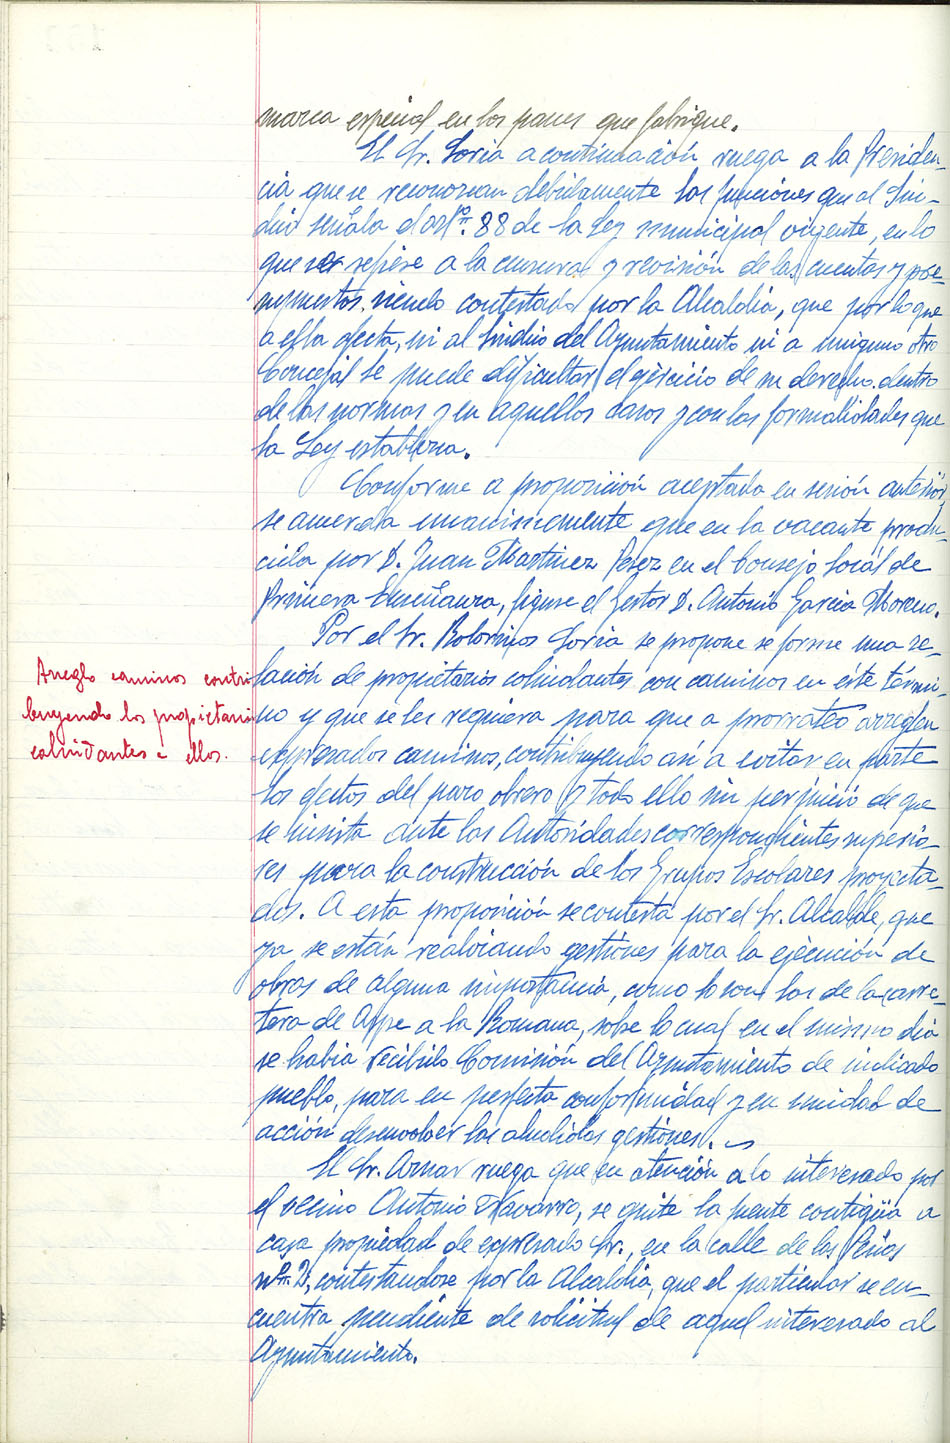 marca especial en los panes que fabrique.
El Sr. Soria a continuación ruega a la Presiden-
cia que se reconozcan debidamente las funciones que al Sín-
dico señala el artº. 88 de la Ley municipal vigente, en lo
que se refiere a la censura y revisión de las cuentas y pre-
supuestos, siendo contestado por la Alcaldía, que por lo que
a ella afecta, ni al Síndico del Ayuntamiento ni a ninguno otro
Concejal se puede dificultar el ejercicio de su derecho dentro
de las normas y en aquellos casos y con las formalidades que
la Ley establezca.
Conforme a proposición aceptada en sesión anterior
se acuerda unanimemente que en la vacante produ-
cida por D. Juan Martinez Perez en el Consejo Local de
Primera Enseñanza, figure el Gestor D. Antonio Garcia Moreno.
Por el Sr. Soria se propone se forme una re-
Arreglo caminos contri
buyendo los propietarios
colindantes a ellos.
lación de propietarios colindantes con caminos en éste térmi-
no y que se les requiera para que a prorrateo arreglen
expresados caminos, contribuyendo así a evitar en parte
los efectos del paro obrero y todo ello sin perjuicio de que
se insista ante las Autoridades correspondientes superio-
res para la construcción de los Grupos Escolares proyecta-
dos. A esta proposición se contesta por el Sr. Alcalde, que
ya se están realizando gestiones para la ejecución de
obras de alguna importancia, como lo son las de la carre-
tera de Aspe a la Romana, sobre lo cual en el mismo dia
se habia recibido Comisión del Ayuntamiento de indicado
pueblo, para en perfecta conformidad y en unidad de
acción desenvolver las aludidas gestiones.
El Sr. Aznar ruega que en atención a lo interesado por
el vecino Antonio Navarro, se quite la fuente contigüa a
casa propiedad de expresado Sr., en la calle de las Peñas
nº. 2, contestandose por la Alcaldía, que el particular se en-
cuentra pendiente de solicitud de aquel interesado al
Ayuntamiento.